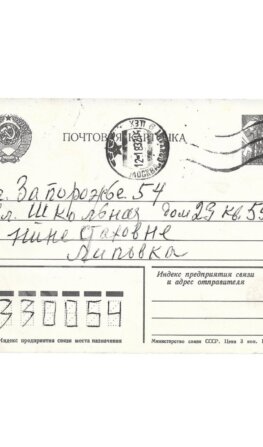 ПОЧТОВАЯ КАРТОЧКА
г. Запорожье 54
ул. Школьная дом 23 кв 55
Нине
Липовка
Индекс предприятия связи
и адрес отправителя
330054
Индекс предприятия связи места назначения
Министерство связи СССР. Цена 3 коп.